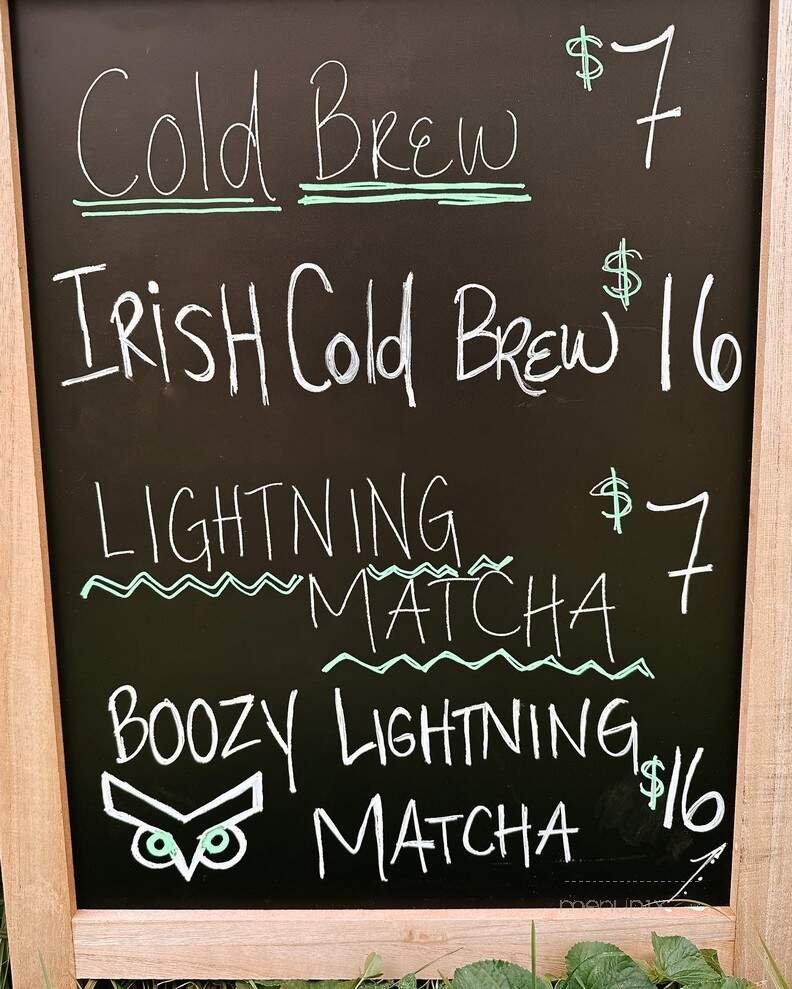 Cold Brew $7
Irish Cold Brew $16
LIGHTNING $7
MATCHA
BOOZY LIGHTNING
MATCHA $16
menupix